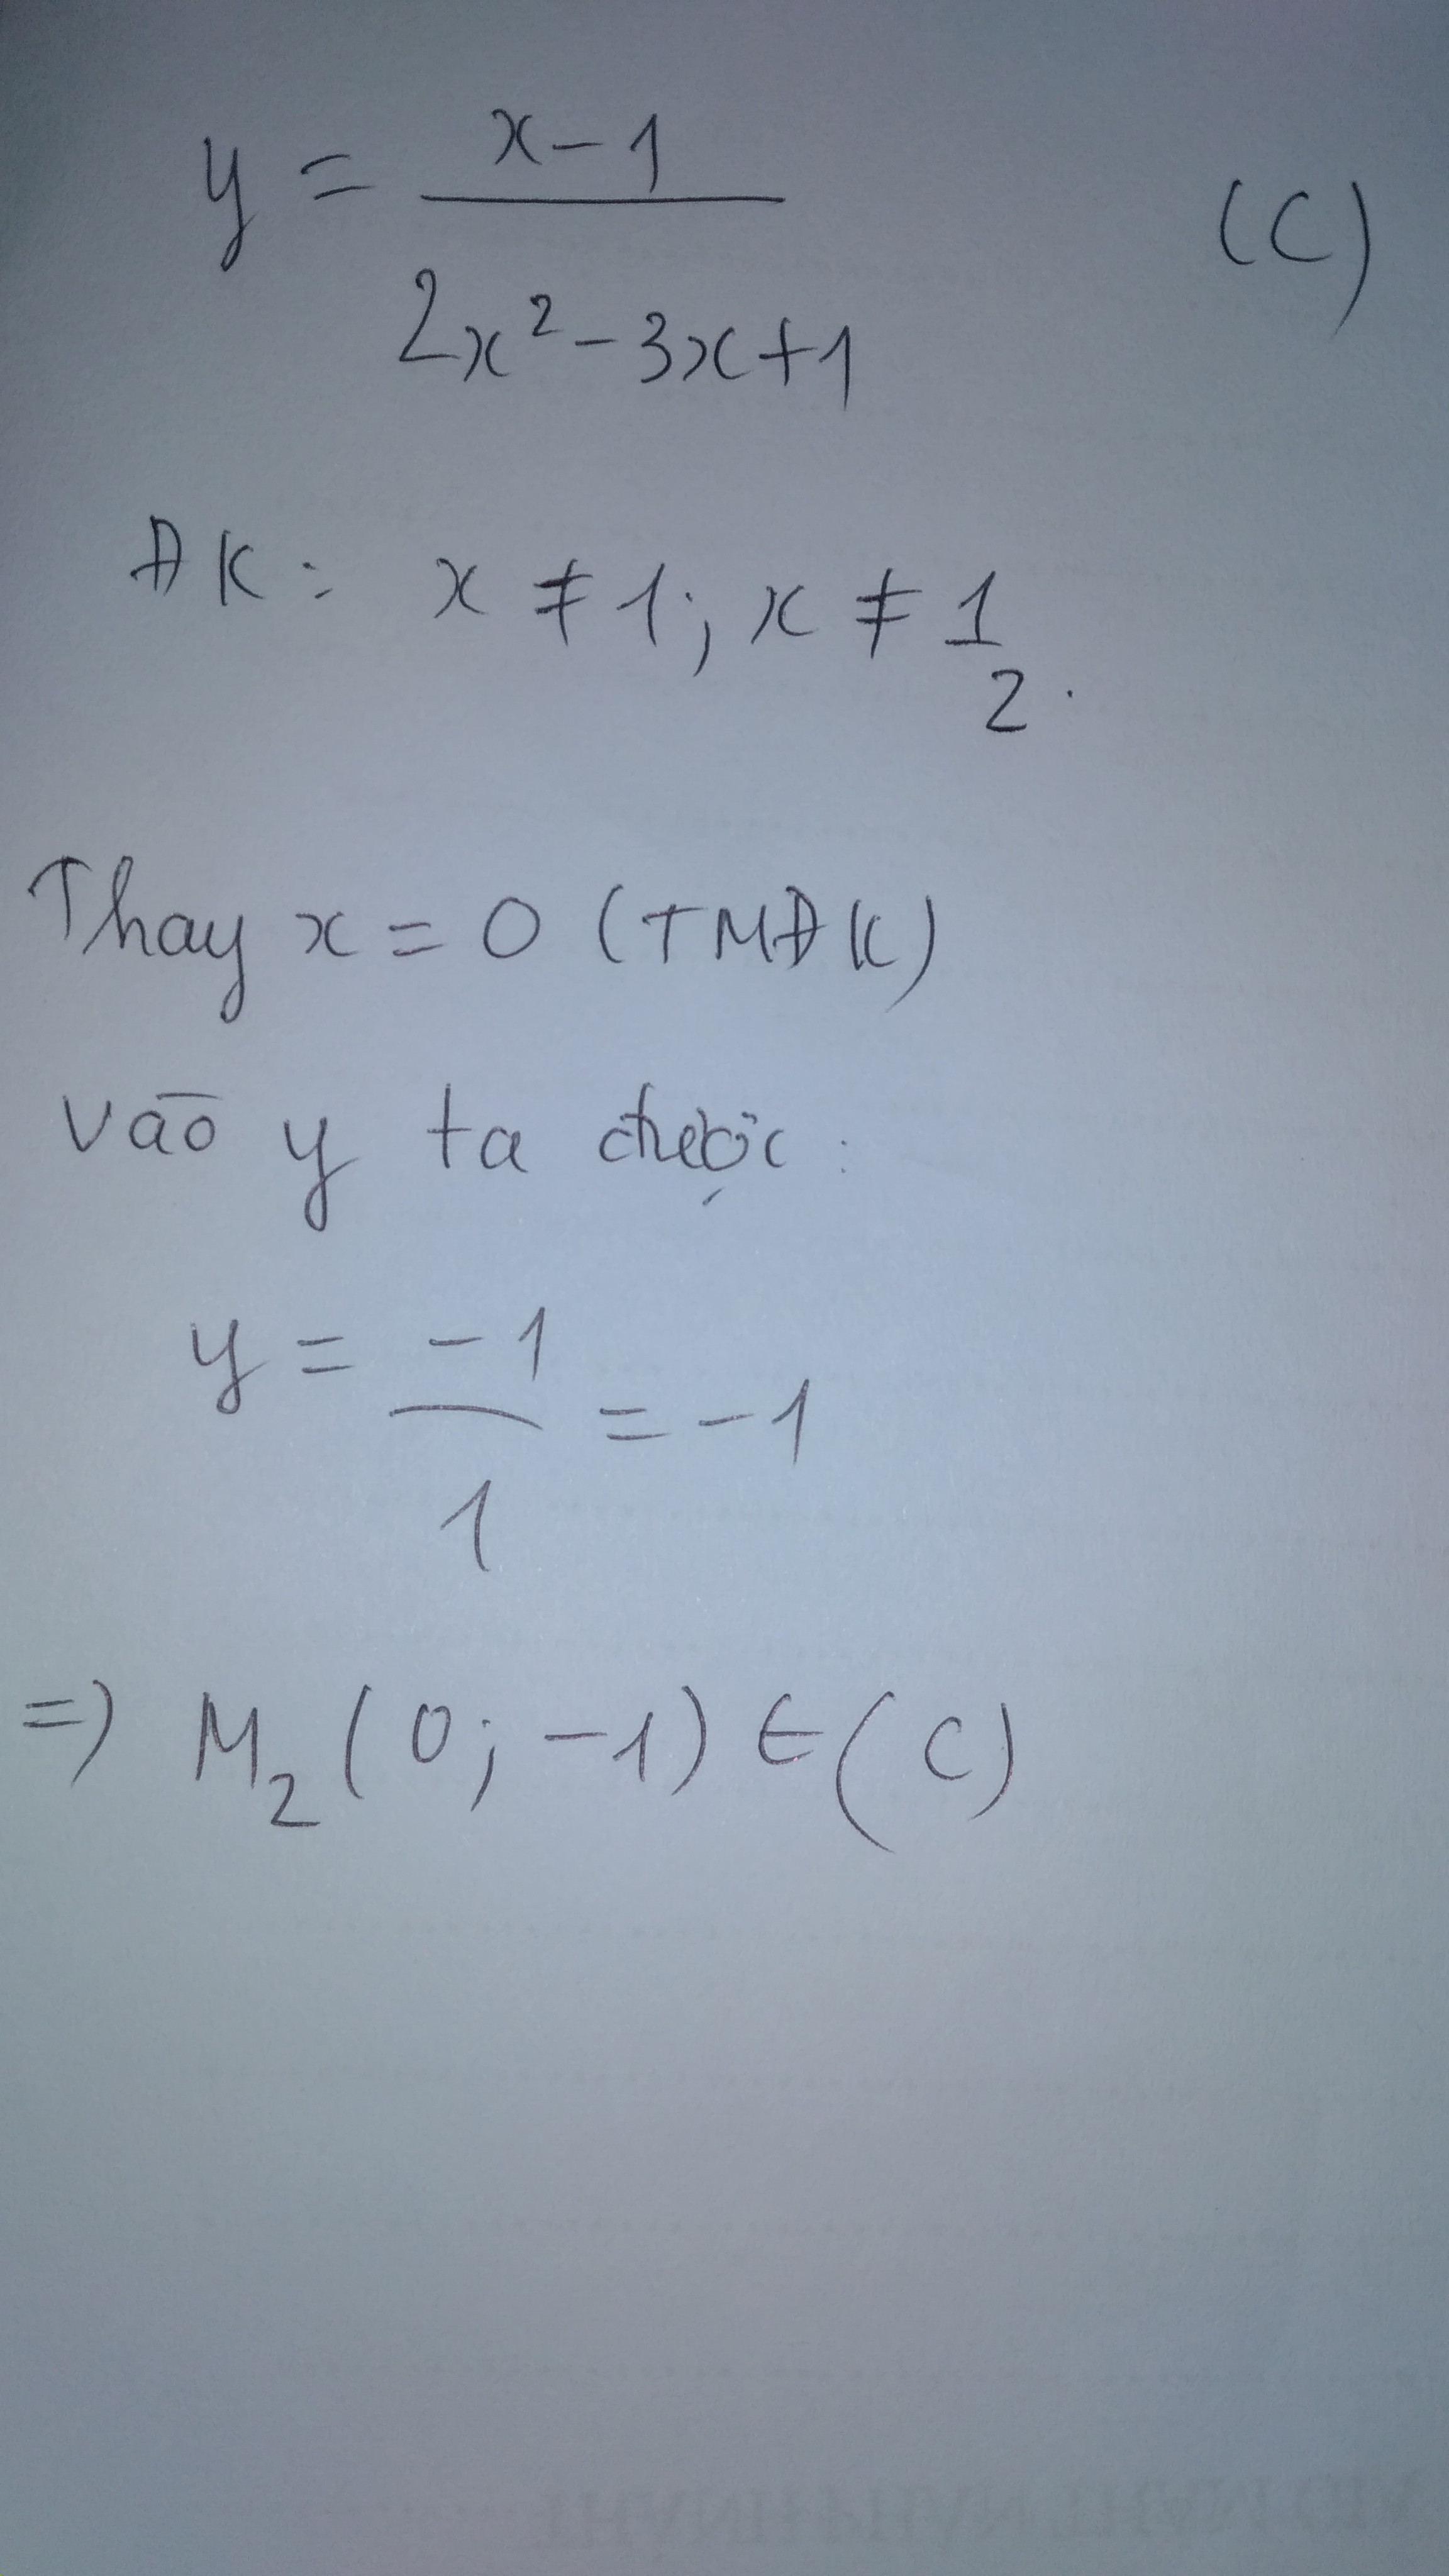 y = x-1 / 2x²-3x+1 (C)
ĐK: x ≠ 1; x ≠ 1/2.
Thay x = 0 (TMĐK)
vào y ta được:
y = -1/1 = -1
=> M₂(0; -1) ∈ (C)